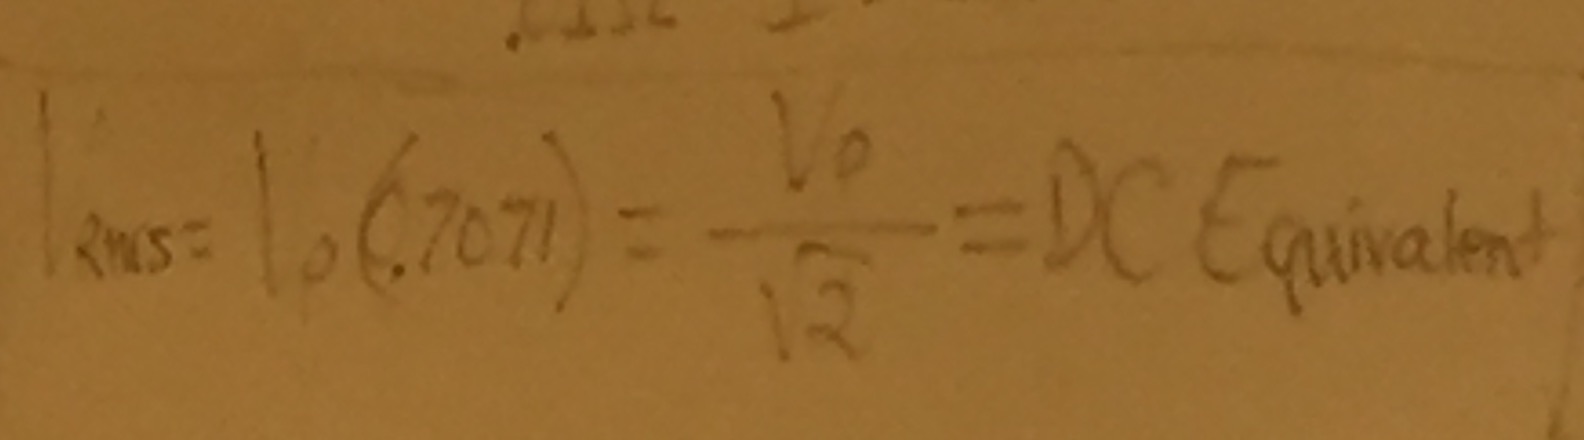 V Rms = Vo (.7071) = Vo/√2 = DC Equivalent